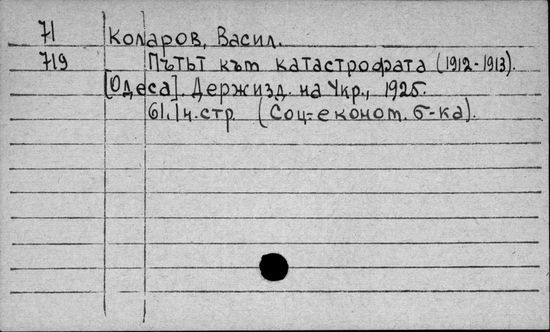 71 Коларов, Васил.
719 Пътьт към катастрофата (1912-1913).
[Одеса]. Держизд. на Укр., 1925.
61, 1 ч. стр (Соц-економ. б-ка).